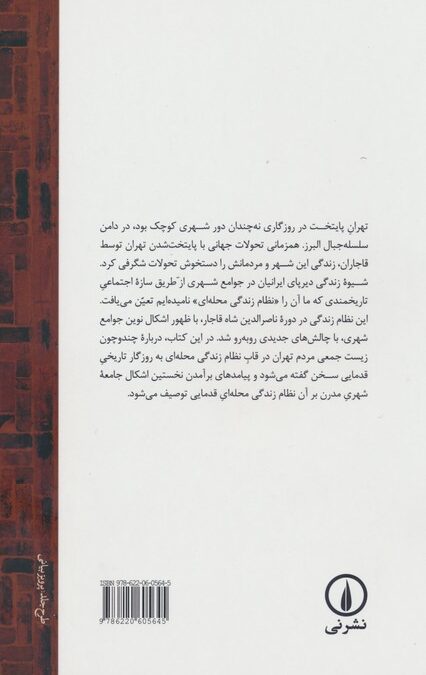 تهرانِ پایتخت در روزگاری نه‌چندان دور شهری کوچک بود، در دامن
سلسله‌جبال البرز. همزمانی تحولات جهانی با پایتخت‌شدن تهران توسط
قاجاران، زندگی این شهر و مردمانش را دستخوش تحولات شگرفی کرد.
شیوهٔ زندگی دیرپای ایرانیان در جوامع شهری از طریق سازهٔ اجتماعیِ
تاریخمندی که ما آن را «نظام زندگی محله‌ای» نامیده‌ایم تعیّن می‌یافت.
این نظام زندگی در دورهٔ ناصرالدین شاه قاجار، با ظهور اشکال نوین جوامع
شهری، با چالش‌های جدیدی روبه‌رو شد. در این کتاب، دربارهٔ چندوچون
زیست جمعی مردم تهران در قابِ نظام زندگی محله‌ای به روزگار تاریخیِ
قدمایی سخن گفته می‌شود و پیامدهای برآمدن نخستین اشکال جامعهٔ
شهریِ مدرن بر آن نظام زندگی محله‌ایِ قدمایی توصیف می‌شود.
طرح جلد: پرویز بیانی
ISBN 978-622-06-0564-5
9 786220 605645
نشرنی